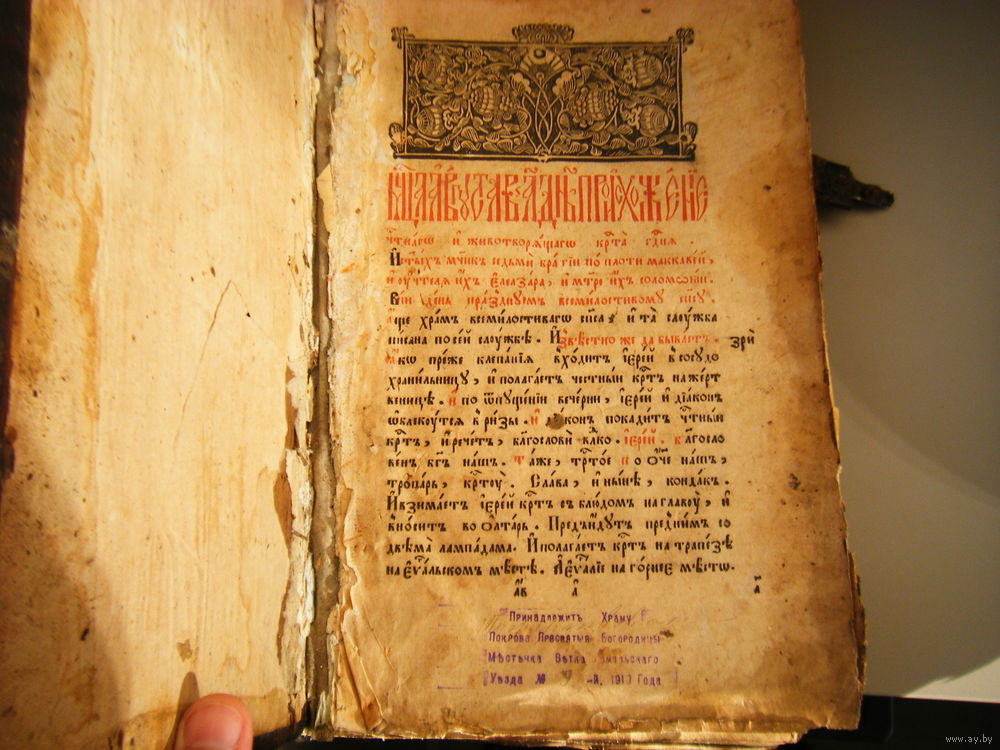 мц҃а а҆́вгꙋста въ а҃ днь происхожⷣе́нїе
чⷭ҇тнагѡ и҆ животворѧ́щагѡ крⷭ҇та̀ гдⷭ҇нѧ .
И҆ ст҃ы́хъ мч҃нкъ седьми́ бра́тїи по́ плоти маккаве́и ,
и҆ оу҆чт҃елѧ и҆́хъ є҆леаза́ра , и҆ мт҃ре и҆́хъ соломѡні́и .
Во́и де́нь пра́зднꙋемъ всемилостивому сп҃сꙋ .
а҆́ще хра́мъ всемилостивагѡ сп҃са , и҆ та̀ слꙋ́жба
пи́сана по се́й слꙋ́жбѣ . И҆звѣ́стно же да быва́етъ . зрѝ
ꙗ҆́кѡ пре́же клепа́нїѧ вхо́дитъ і҆ере́й в сосꙋ́до
храни́льницꙋ , и҆ полага́етъ честны́й крⷭ҇тъ на же́рт
венице . и҆ по ѿпꙋще́нїи вече́рни , і҆ере́й и҆ дїа́конъ
ѡ҆блеко́утсѧ в ри́зы . и҆ дїа́конъ покади́тъ чⷭ҇тны́й
крⷭ҇тъ , и҆ рече́тъ , благословѝ влⷣко . і҆ере́й . благосло
ве́нъ бг҃ъ на́шъ . Та́же , трⷭ҇то́е и҆ по ѻ҆́ч҃е на́шъ ,
тропа́рь , крⷭ҇тоу̀ . Сла́ва , и҆ ны́нѣ , конда́къ .
И҆ взима́етъ і҆ере́й крⷭ҇тъ съ блю́домъ на главоу̀ , и҆
вно́ситъ во ѻ҆лта́рь . Предъи́дꙋтъ пред ни́мъ со
двѣма̀ лампа́дама . И҆ полага́етъ крⷭ҇тъ на трапе́зѣ
на є҆ѵⷢ҇альскомъ мѣ́стѣ . А҆ є҆ѵⷢ҇алїе на го́рнее мѣ́сто .
а҆в л҃ а҃
Принадлежитъ Храму
Покрова Пресвятыя Богородицы
Мѣстечка Вѣтка
Уѣзда № -й, 1910 Года
www.ay.by